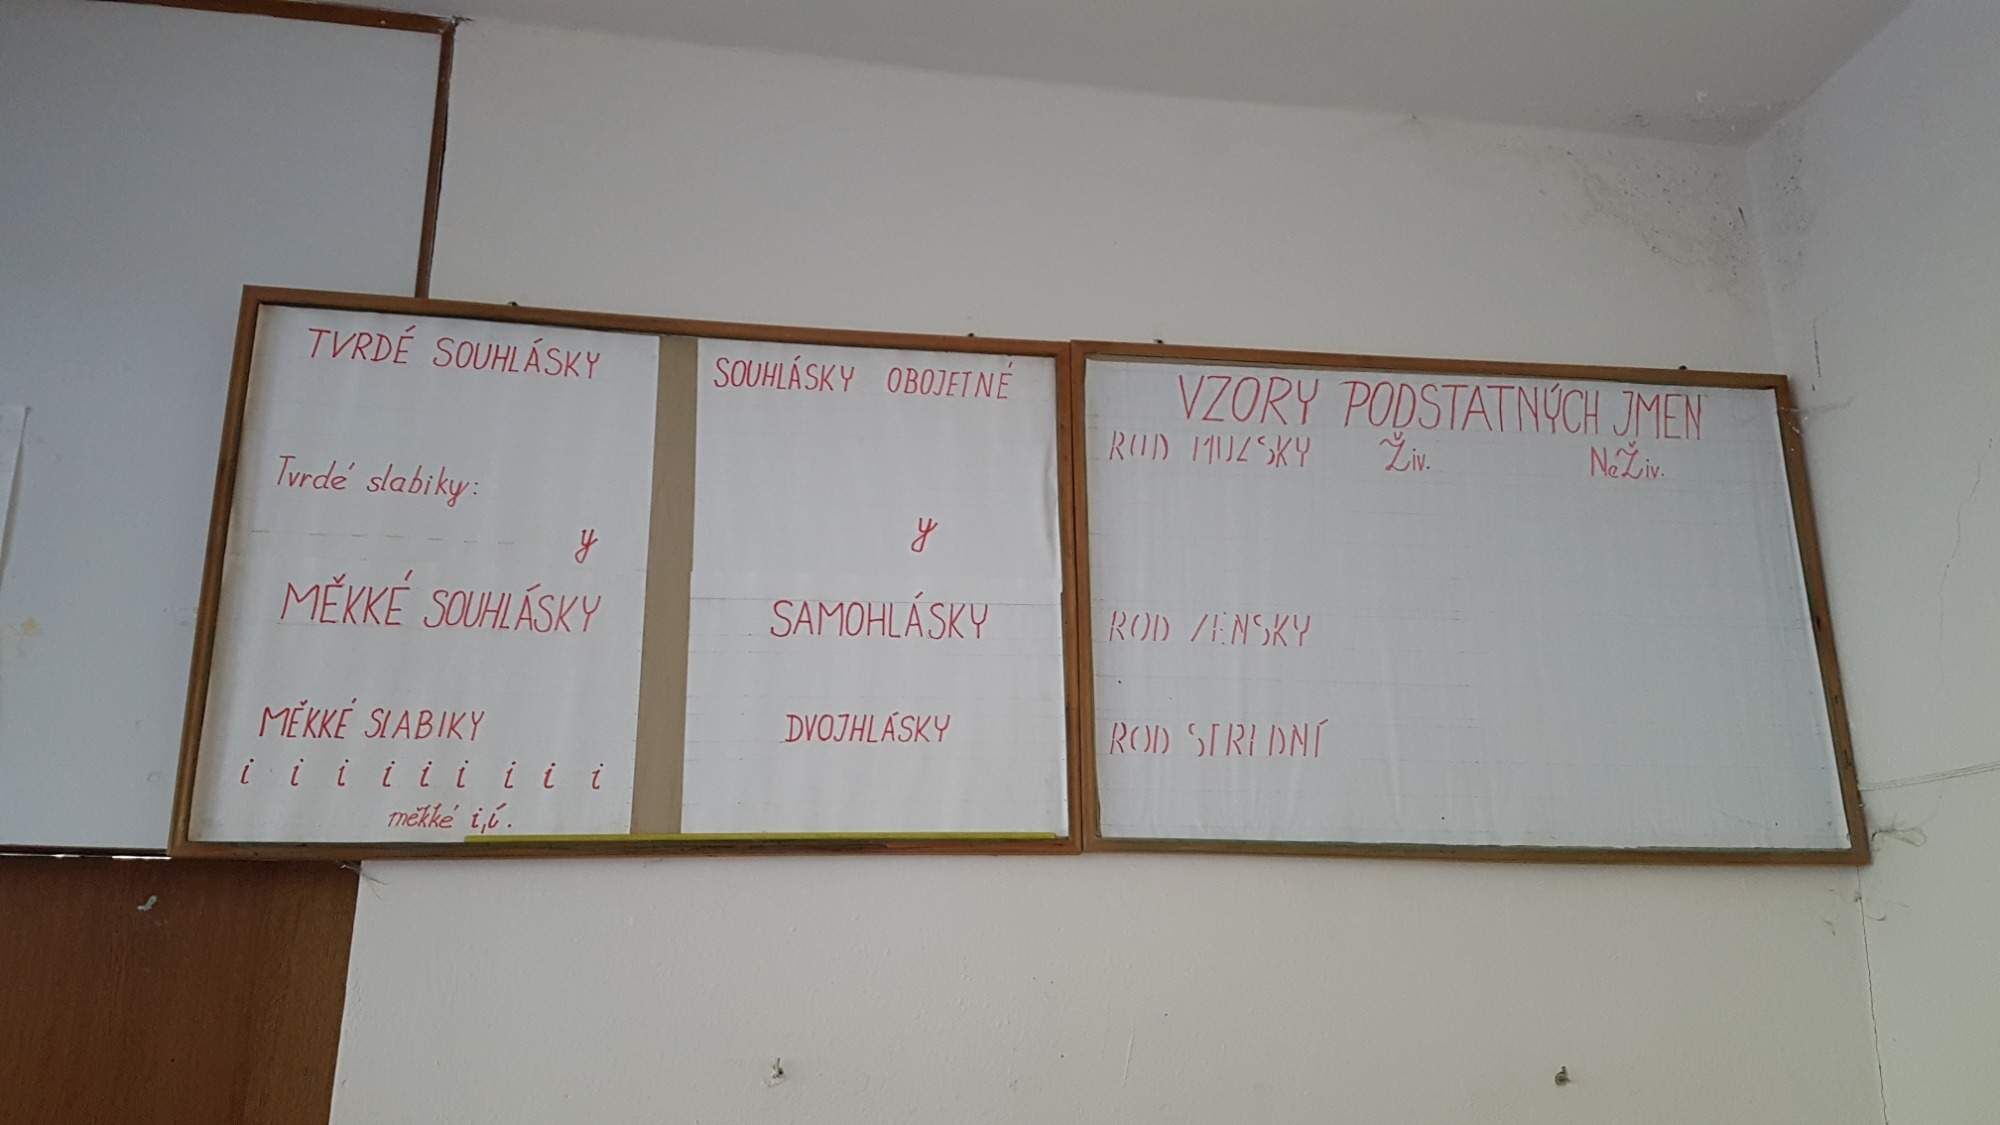 TVRDÉ SOUHLÁSKY
Tvrdé slabiky:
y
MĚKKÉ SOUHLÁSKY
MĚKKÉ SLABIKY
i i i i i i i i i
měkké i,í.
SOUHLÁSKY OBOJETNÉ
y
SAMOHLÁSKY
DVOJHLÁSKY
VZORY PODSTATNÝCH JMEN
ROD MUŽSKÝ Živ. NeŽiv.
ROD ŽENSKÝ
ROD STŘEDNÍ